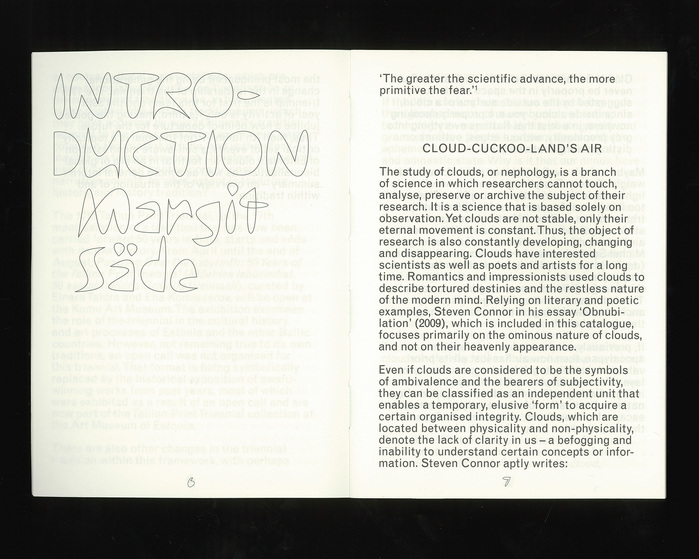 INTRO-
DUCTION
Margit
Säde
6
‘The greater the scientific advance, the more
primitive the fear.’¹
CLOUD-CUCKOO-LAND’S AIR
The study of clouds, or nephology, is a branch
of science in which researchers cannot touch,
analyse, preserve or archive the subject of their
research. It is a science that is based solely on
observation. Yet clouds are not stable, only their
eternal movement is constant. Thus, the object of
research is also constantly developing, changing
and disappearing. Clouds have interested
scientists as well as poets and artists for a long
time. Romantics and impressionists used clouds to
describe tortured destinies and the restless nature
of the modern mind. Relying on literary and poetic
examples, Steven Connor in his essay ‘Obnubi-
lation’ (2009), which is included in this catalogue,
focuses primarily on the ominous nature of clouds,
and not on their heavenly appearance.
Even if clouds are considered to be the symbols
of ambivalence and the bearers of subjectivity,
they can be classified as an independent unit that
enables a temporary, elusive ‘form’ to acquire a
certain organised integrity. Clouds, which are
located between physicality and non-physicality,
denote the lack of clarity in us – a befogging and
inability to understand certain concepts or infor-
mation. Steven Connor aptly writes:
7